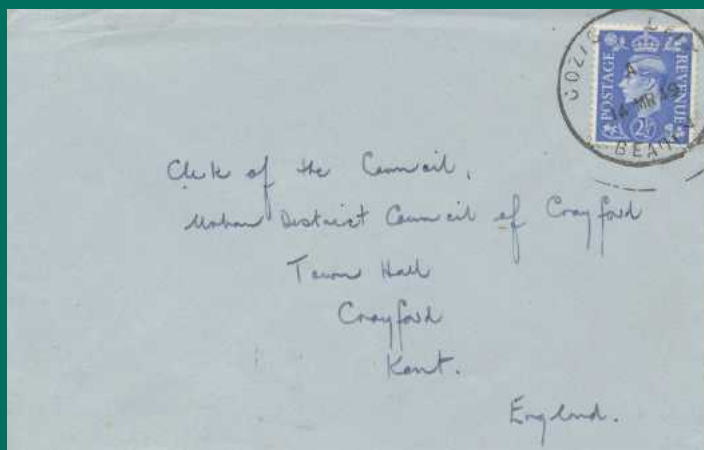 POSTAGE
REVENUE
2½
A
14 MR 49
Clerk of the Council,
Urban District Council of Crayford
Town Hall
Crayford
Kent.
England.